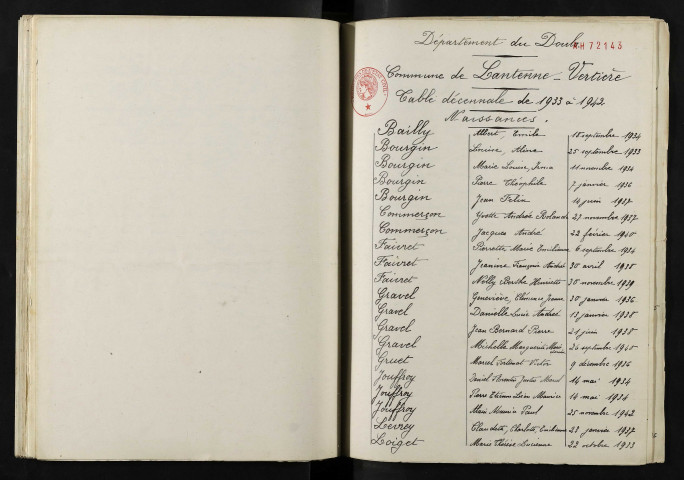 Département du Doubs
72143
Commune de Lantenne-Vertière
Table décennale de 1933 à 1942
Naissances.
Bailly Albert Emile 18 septembre 1934
Bourgin Louise, Aline 25 septembre 1933
Bourgin Marie Louise, Irma 11 novembre 1934
Bourgin Pierre Théophile 7 janvier 1936
Bourgin Jean Felix 14 juin 1937
Commerçon Yvette Andrée Rolande 27 novembre 1937
Commerçon Jacques André 22 février 1940
Faivret Pierrette, Marie Emilienne 6 septembre 1934
Faivret Jeanine François Andrée 30 avril 1938
Faivret Nelly Berthe Henriette 30 novembre 1939
Gravel Geneviève, Clémence Jeanne 30 janvier 1936
Gravel Danielle Lucie Andrée 13 janvier 1938
Gravel Jean Bernard Pierre 21 juin 1938
Gravel Michelle Marguerite Marie 26 septembre 1940
Gruet Marcel Victor 9 décembre 1936
Jouffroy Daniel Marcel 14 mai 1934
Jouffroy Pierre Etienne Maurice 14 mai 1934
Jouffroy Alain Maurice Paul 25 novembre 1942
Levrey Claudette, Charlotte, 23 janvier 1937
Loiget Marie Thérèse Lucienne 22 octobre 1933